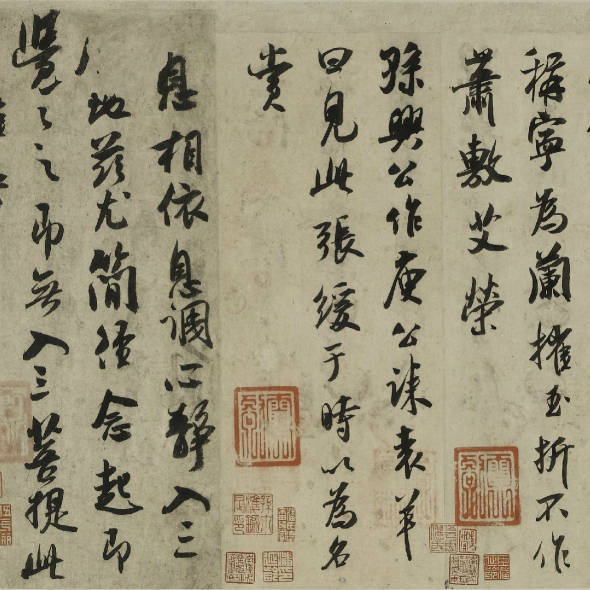 稱寧為蘭摧玉折不作
蕭敷艾榮
孫興公作庾公誄袁羊
曰見此張緩于時以為名
賞
息相依息調心靜入三
地茲尤簡徑念起即
覺〻之即無入三菩提此